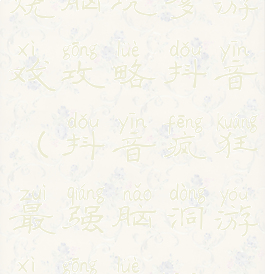 游
xì gōng lüè dǒu yīn
戏攻略抖音
dǒu yīn fēng kuáng
（抖音疯狂
zuì qiáng nǎo dòng yóu
最强脑洞游
xì gōng lüè